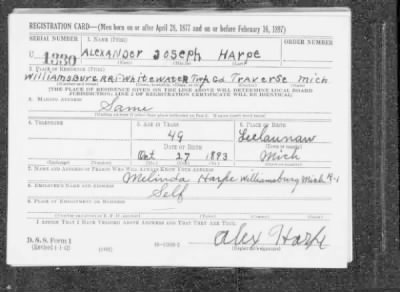 REGISTRATION CARD—(Men born on or after April 28, 1877 and on or before February 16, 1897)
SERIAL NUMBER 1. NAME (Print) ORDER NUMBER
U 1330 ALEXANDER JOSEPH HARPE
2. PLACE OF RESIDENCE (Print)
Williamsburg RR1 Whitewater Twp Gd Traverse Mich
(THE PLACE OF RESIDENCE GIVEN ON THE LINE ABOVE WILL DETERMINE LOCAL BOARD
JURISDICTION; LINE 2 OF REGISTRATION CERTIFICATE WILL BE IDENTICAL)
3. MAILING ADDRESS
Same
4. TELEPHONE 5. AGE IN YEARS 6. PLACE OF BIRTH
49 Leelaunaw
DATE OF BIRTH
Oct 27 1893 Mich
7. NAME AND ADDRESS OF PERSON WHO WILL ALWAYS KNOW YOUR ADDRESS
Melinda Harpe Williamsburg Mich R-1
8. EMPLOYER'S NAME AND ADDRESS
Self
9. PLACE OF EMPLOYMENT OR BUSINESS
I AFFIRM THAT I HAVE VERIFIED ABOVE ANSWERS AND THAT THEY ARE TRUE.
D. S. S. Form 1
(Revised 4-1-42)
Alex Harpe